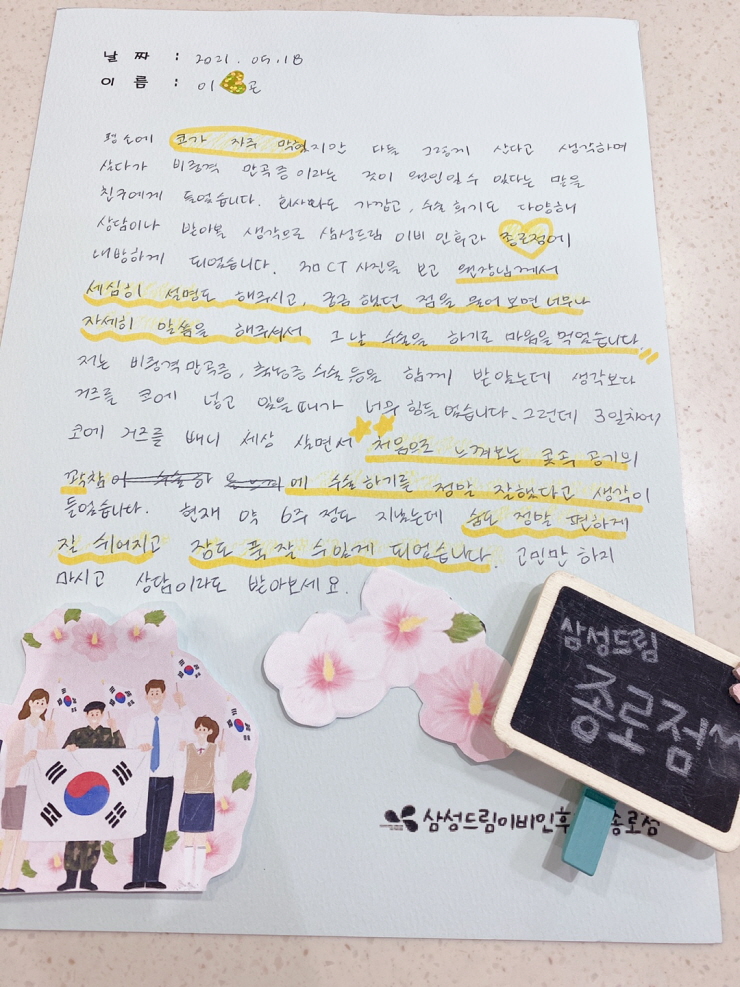 날 짜 : 2021. 05. 18
이 름 : 이 곤
평소에 코가 자주 막혔지만 다들 그렇게 산다고 생각하며
살다가 비중격 만곡증이라는 것이 원인일 수 있다는 말을
친구에게 들었습니다. 회사와도 가깝고, 수술 후기도 다양해
상담이나 받아볼 생각으로 삼성드림 이비인후과 종로점에
내방하게 되었습니다. 3D CT 사진을 보고 원장님께서
세심히 설명도 해주시고, 궁금했던 점을 물어보면 너무나
자세히 말씀을 해주셔서 그날 수술을 하기로 마음을 먹었습니다.
저는 비중격만곡증, 축농증 수술 등을 함께 받았는데 생각보다
거즈를 코에 넣고 있을때가 너무 힘들었습니다. 그런데 3일차에
코에 거즈를 빼니 세상 살면서 처음으로 느껴보는 콧속 공기의
콱참에 수술하기를 정말 잘했다고 생각이
들었습니다. 현재 약 6주 정도 지났는데 숨도 정말 편하게
잘 쉬어지고 잠도 푹 잘 수 있게 되었습니다. 고민만 하지
마시고 상담이라도 받아보세요.
삼성드림
종로점
삼성드림이비인후 종로점